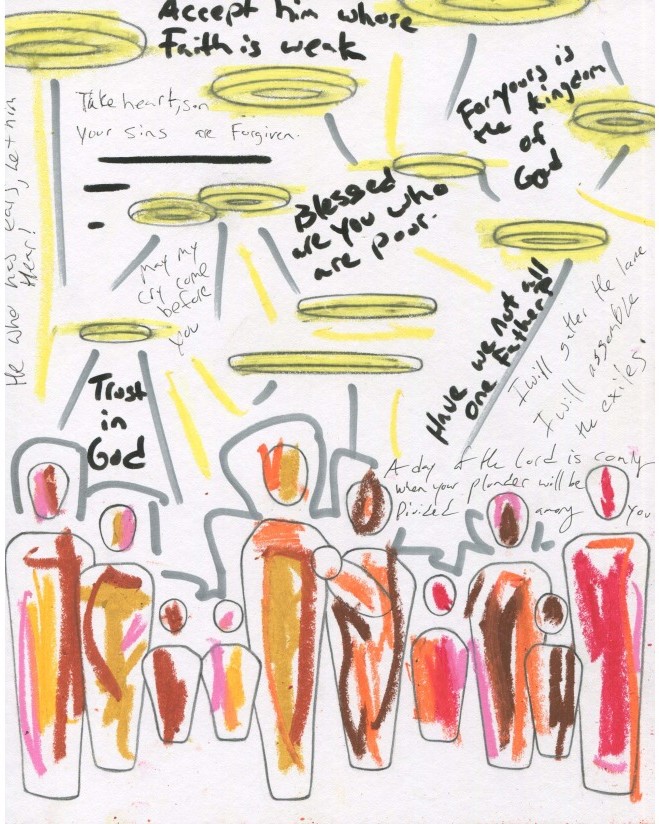 Accept him whose
Faith is weak
Take heart, son
your sins are Forgiven.
For yours is
the kingdom
of
God
He who has ears, Let him
Hear!
Blessed
are you who
are poor.
May my
cry come
before
you
Have we not all
one Father?
I will gather the lame
I will assemble
the exiles.
Trust
in
God
A day of the Lord is coming
when your plunder will be
Divided among you